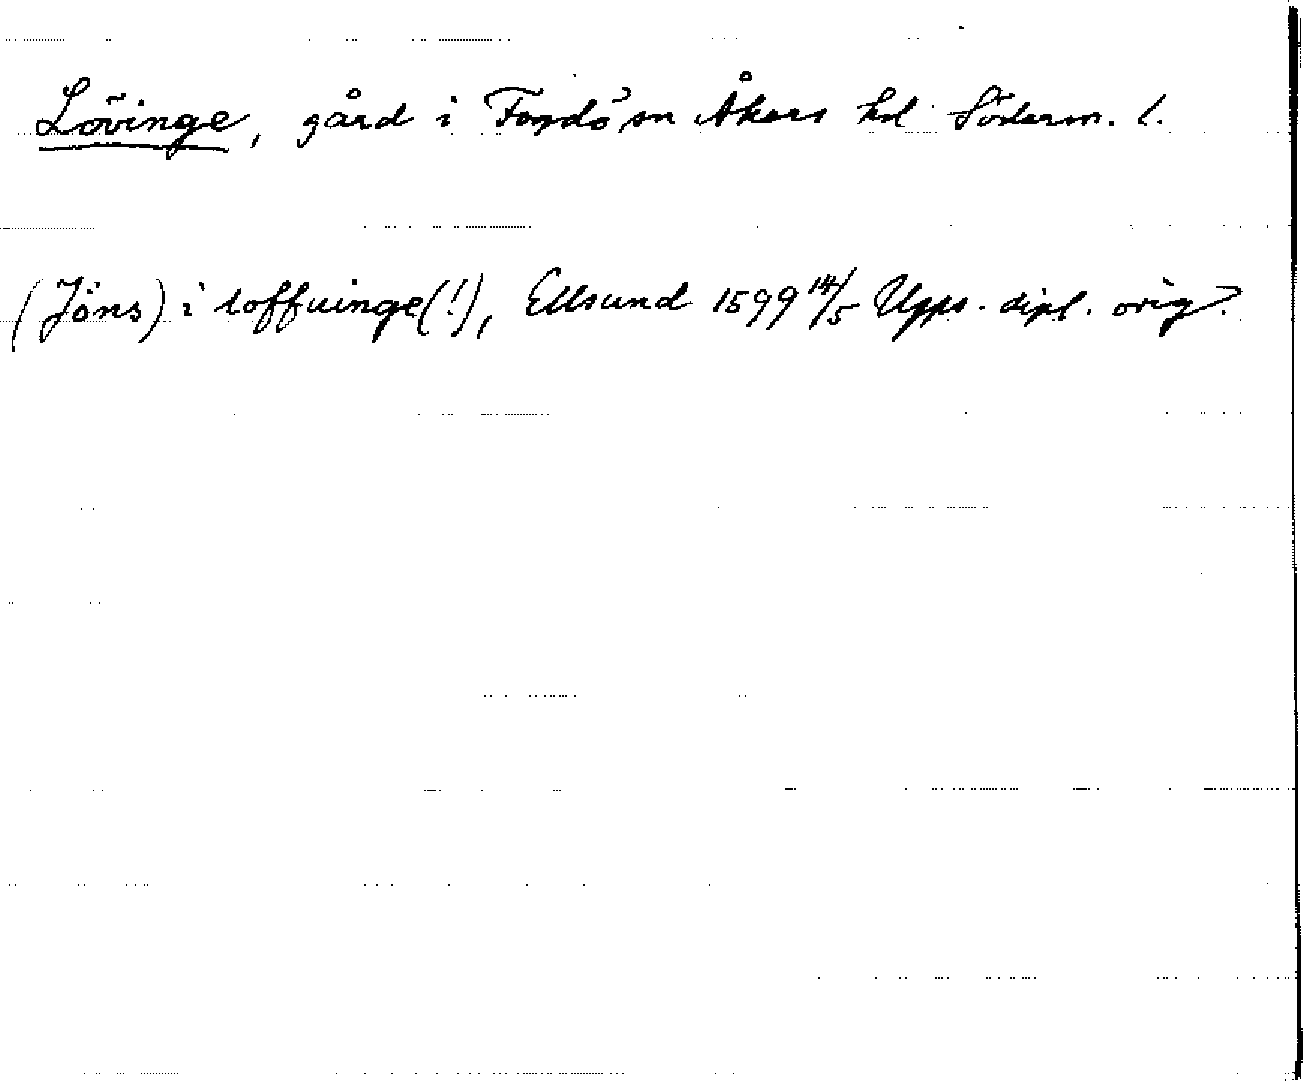 Lövinge, gård i Fogdö sn Åkers hd Söderm. l.
(Jöns) i loffuinge(!), Ellsund 1599 14/5 Upps. dipl. orig.